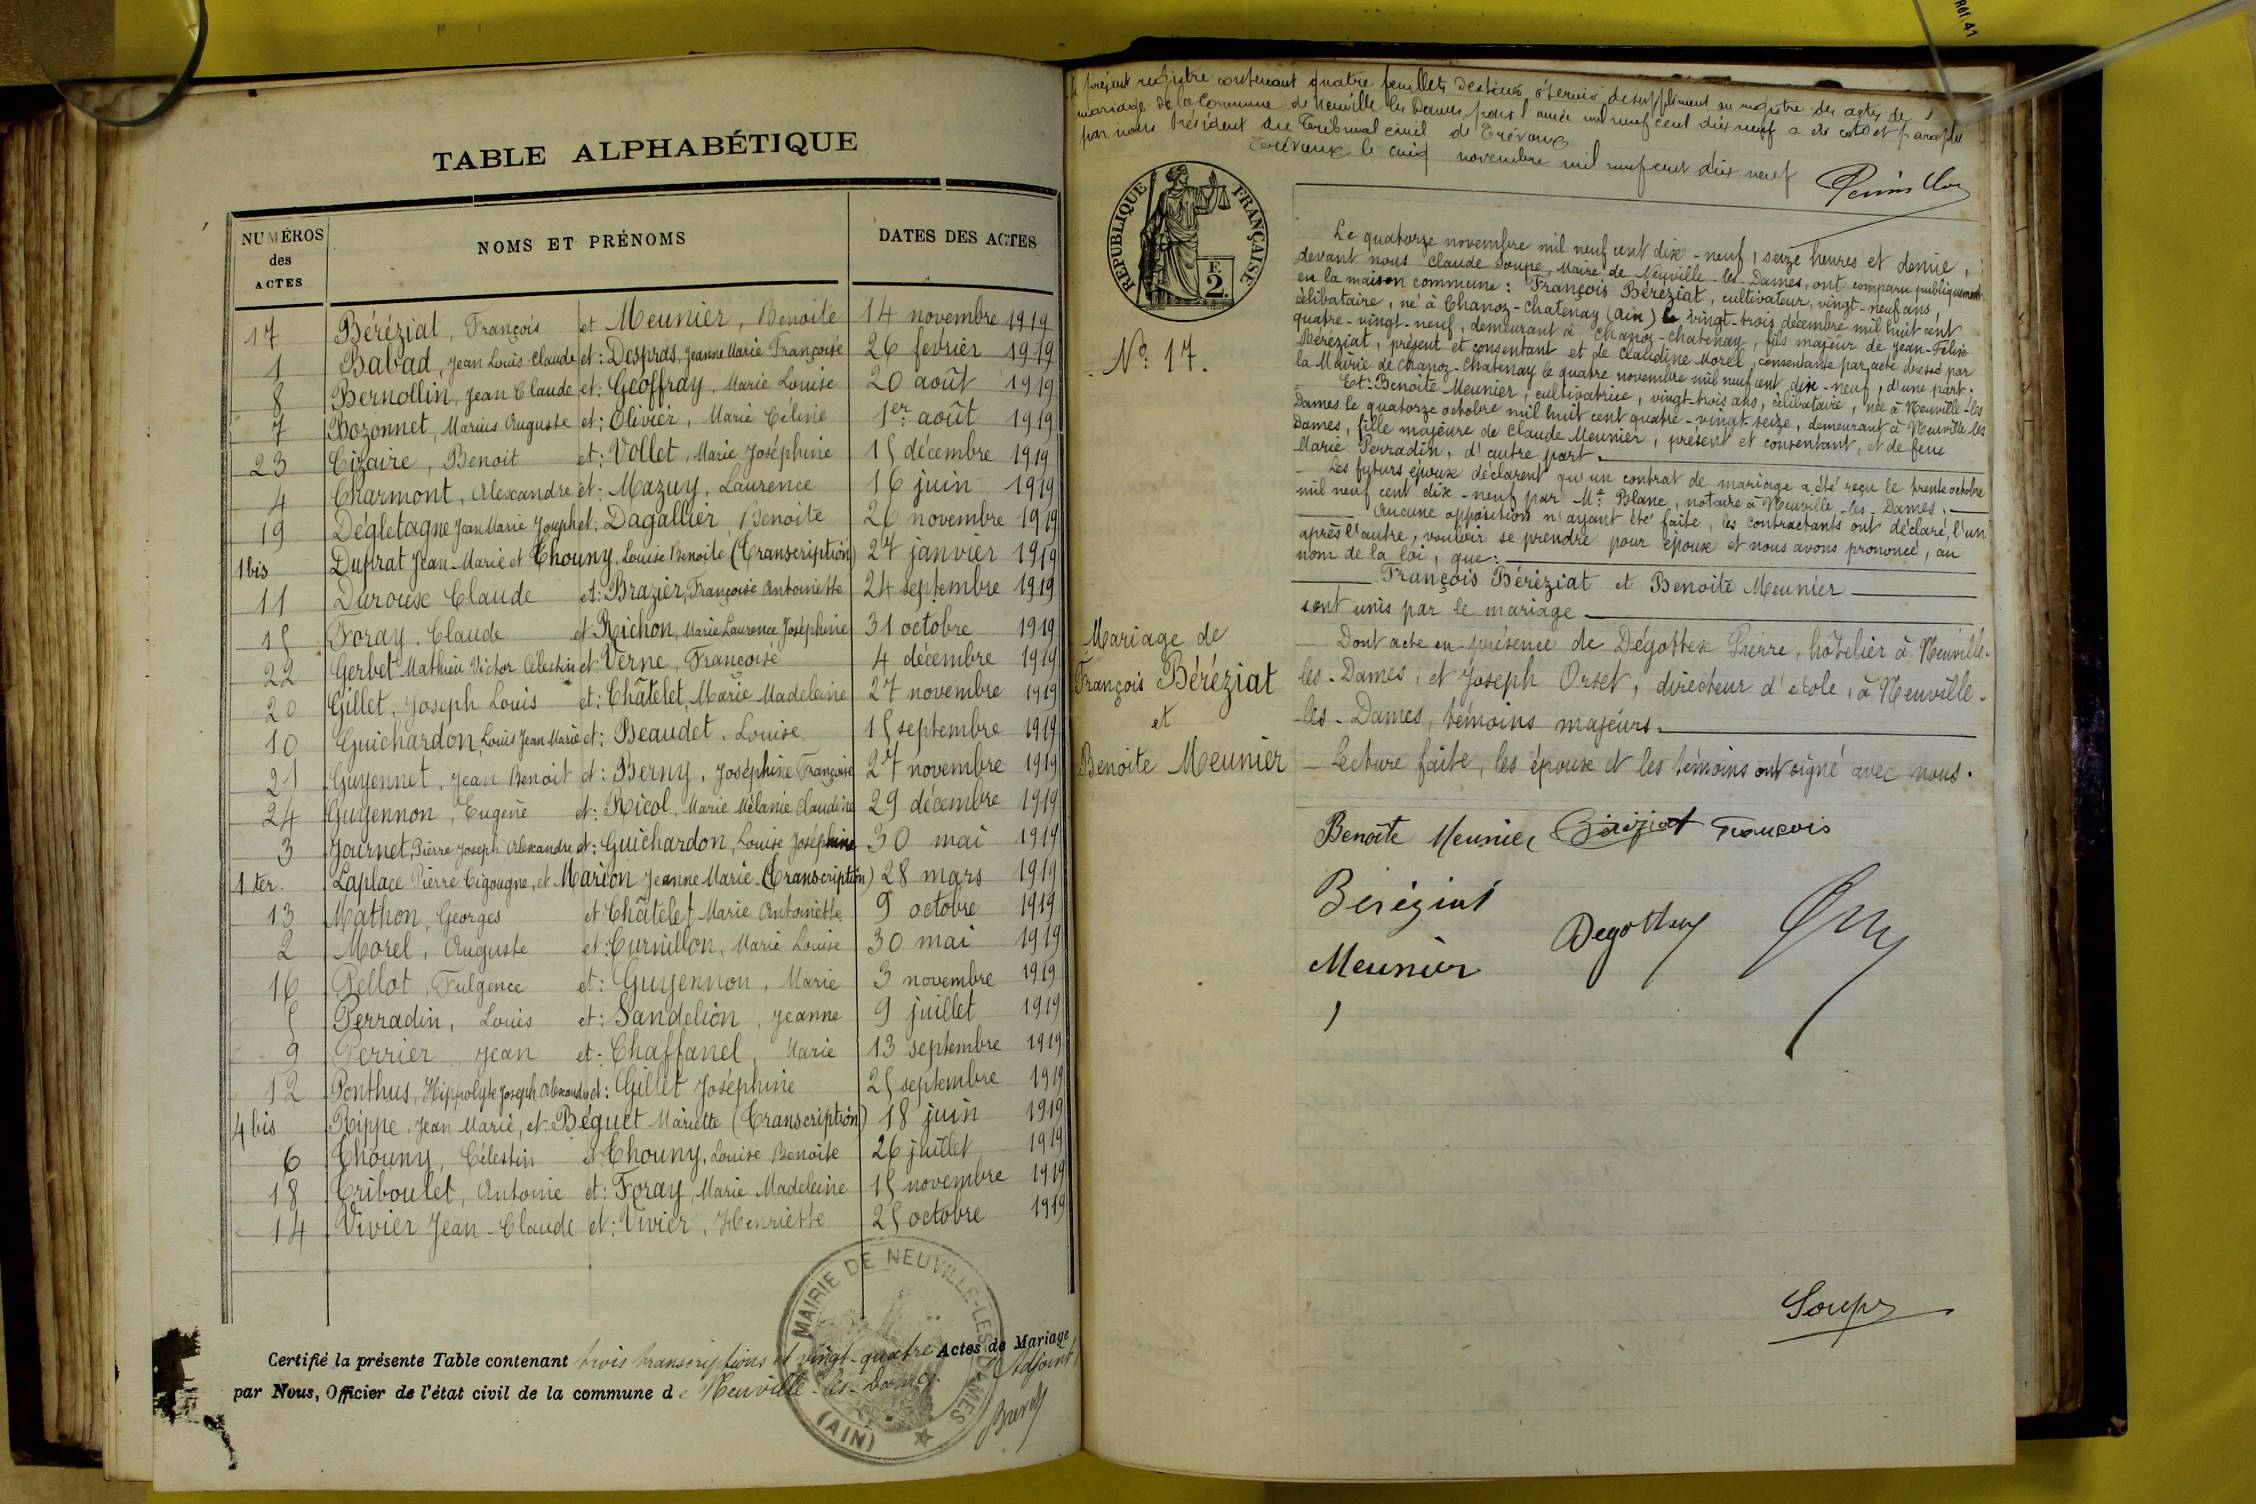 Réf. 41
TABLE ALPHABÉTIQUE
NUMÉROS des ACTES
NOMS ET PRÉNOMS
DATES DES ACTES
17 Béréziat, François et Meunier, Benoite 14 novembre 1919
1 Babad, Jean Louis Claude et: Desprás, Jeanne Marie Françoise 26 février 1919
8 Bernollin, Jean Claude et: Geoffray, Marie Louise 20 août 1919
7 Bozonnet, Marius Auguste et: Olivier, Marie Céline 1er août 1919
23 Cizaire, Benoit et: Vollet, Marie Joséphine 15 décembre 1919
4 Charmont, Alexandre et: Mazuy, Laurence 16 juin 1919
19 Dégletagne Jean Marie Joseph et: Dagallier Benoite 26 novembre 1919
1 bis Duprat Jean-Marie et Thouny, Louise Benoite (Transcription) 27 janvier 1919
11 Duroux Claude et: Brazier, Françoise Antoinette 24 septembre 1919
15 Foray, Claude et Richon, Marie Laurence Joséphine 31 octobre 1919
22 Gerbet Mathieu Victor Célestin et: Verne, Françoise 4 décembre 1919
20 Gillet, Joseph Louis et: Châtelet, Marie Madeleine 27 novembre 1919
10 Guichardon Louis Jean Marie et: Beaudet, Louise 15 septembre 1919
21 Guyennet, Jean Benoit et: Berny, Joséphine Françoise 27 novembre 1919
24 Guyennon, Eugène et: Ricol, Marie Mélanie Claudine 29 décembre 1919
3 Journet, Pierre Joseph Alexandre et: Guichardon, Louise Joséphine 30 mai 1919
1 ter. Laplace Pierre Cigougne, et Marion Jeanne Marie (Transcription) 28 mars 1919
13 Mathon, Georges et Châtelet Marie Antoinette 9 octobre 1919
2 Morel, Auguste et: Curnillon, Marie Louise 30 mai 1919
16 Pellot, Fulgence et: Guyennon, Marie 3 novembre 1919
5 Perradin, Louis et: Sandelion, Jeanne 9 juillet 1919
9 Perrier Jean et: Chaffanel, Marie 13 septembre 1919
12 Ponthus, Hippolyte Joseph Alexandre et: Gillet Joséphine 25 septembre 1919
4 bis Rippe, Jean Marie, et Béguet Mariette (Transcription) 18 juin 1919
6 Thouny, Célestin et Thouny, Louise Benoite 26 juillet 1919
18 Triboulet, Antoine et: Foray, Marie Madeleine 15 novembre 1919
14 Vivier Jean-Claude et: Vivier, Henriette 25 octobre 1919
Certifié la présente Table contenant trois transcriptions et vingt-quatre Actes de Mariage
par Nous, Officier de l'état civil de la commune de Neuville-les-Dames. Adjoint
MAIRIE DE NEUVILLE-LES-DAMES (AIN)
présent registre contenant quatre feuillets destinés à servir de supplément au registre des actes de
mariage de la Commune de Neuville les Dames pour l'année mil neuf cent dix neuf a été coté et paraphé
par nous Président du Tribunal civil de Trévoux
Trévoux le cinq novembre mil neuf cent dix neuf
RÉPUBLIQUE FRANÇAISE
F. 2.
No. 17.
Le quatorze novembre mil neuf cent dix-neuf, seize heures et demie,
devant nous Claude Soupe, Maire de Neuville-les-Dames, ont comparu publiquement
en la maison commune: François Béréziat, cultivateur, vingt-neuf ans,
célibataire, né à Chanoz-Chatenay (Ain) le vingt-trois décembre mil huit cent
quatre-vingt-neuf, demeurant à Chanoz-Chatenay, fils majeur de Jean-Félix
Béréziat, présent et consentant et de Claudine Morel, consentante par acte dressé par
la Mairie de Chanoz-Chatenay le quatre novembre mil neuf cent dix-neuf, d'une part.
Et: Benoite Meunier, cultivatrice, vingt-trois ans, célibataire, née à Neuville-les
Dames le quatorze octobre mil huit cent quatre-vingt-seize, demeurant à Neuville-les
Dames, fille majeure de Claude Meunier, présent et consentant, et de feue
Marie Perradin, d'autre part.
Les futurs époux déclarent qu'un contrat de mariage a été reçu le trente octobre
mil neuf cent dix-neuf par Me Blanc, notaire à Neuville-les-Dames.
Aucune opposition n'ayant été faite, les contractants ont déclaré l'un
après l'autre, vouloir se prendre pour époux et nous avons prononcé, au
nom de la loi, que:
François Béréziat et Benoite Meunier
sont unis par le mariage
Mariage de
François Béréziat
et
Benoite Meunier
Dont acte en présence de Dégottex Pierre, hôtelier à Neuville-
les-Dames, et Joseph Orset, directeur d'école, à Neuville-
les-Dames, témoins majeurs.
Lecture faite, les époux et les témoins ont signé avec nous.
Benoîte Meunier Béréziat François
Béréziat
Meunier
Degottex
Soupe